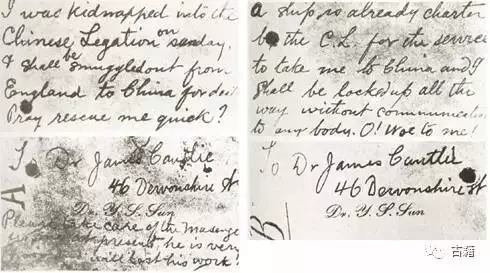 I was kidnapped into the
Chinese Legation on sunday,
& shall be smuggled out from
England to China for
Pray rescue me quick?
To Dr James Cantlie
46 Devonshire St
Dr. Y. S. Sun
A
Please take care of the
present, he is very
will lost his work!
a ship is already charter
by the C.L. for the service
to take me to China and I
shall be locked up all the
way without
to any body. O! Woe to me!
To Dr James Cantlie
46 Devonshire St
Dr. Y. S. Sun
B
古籍